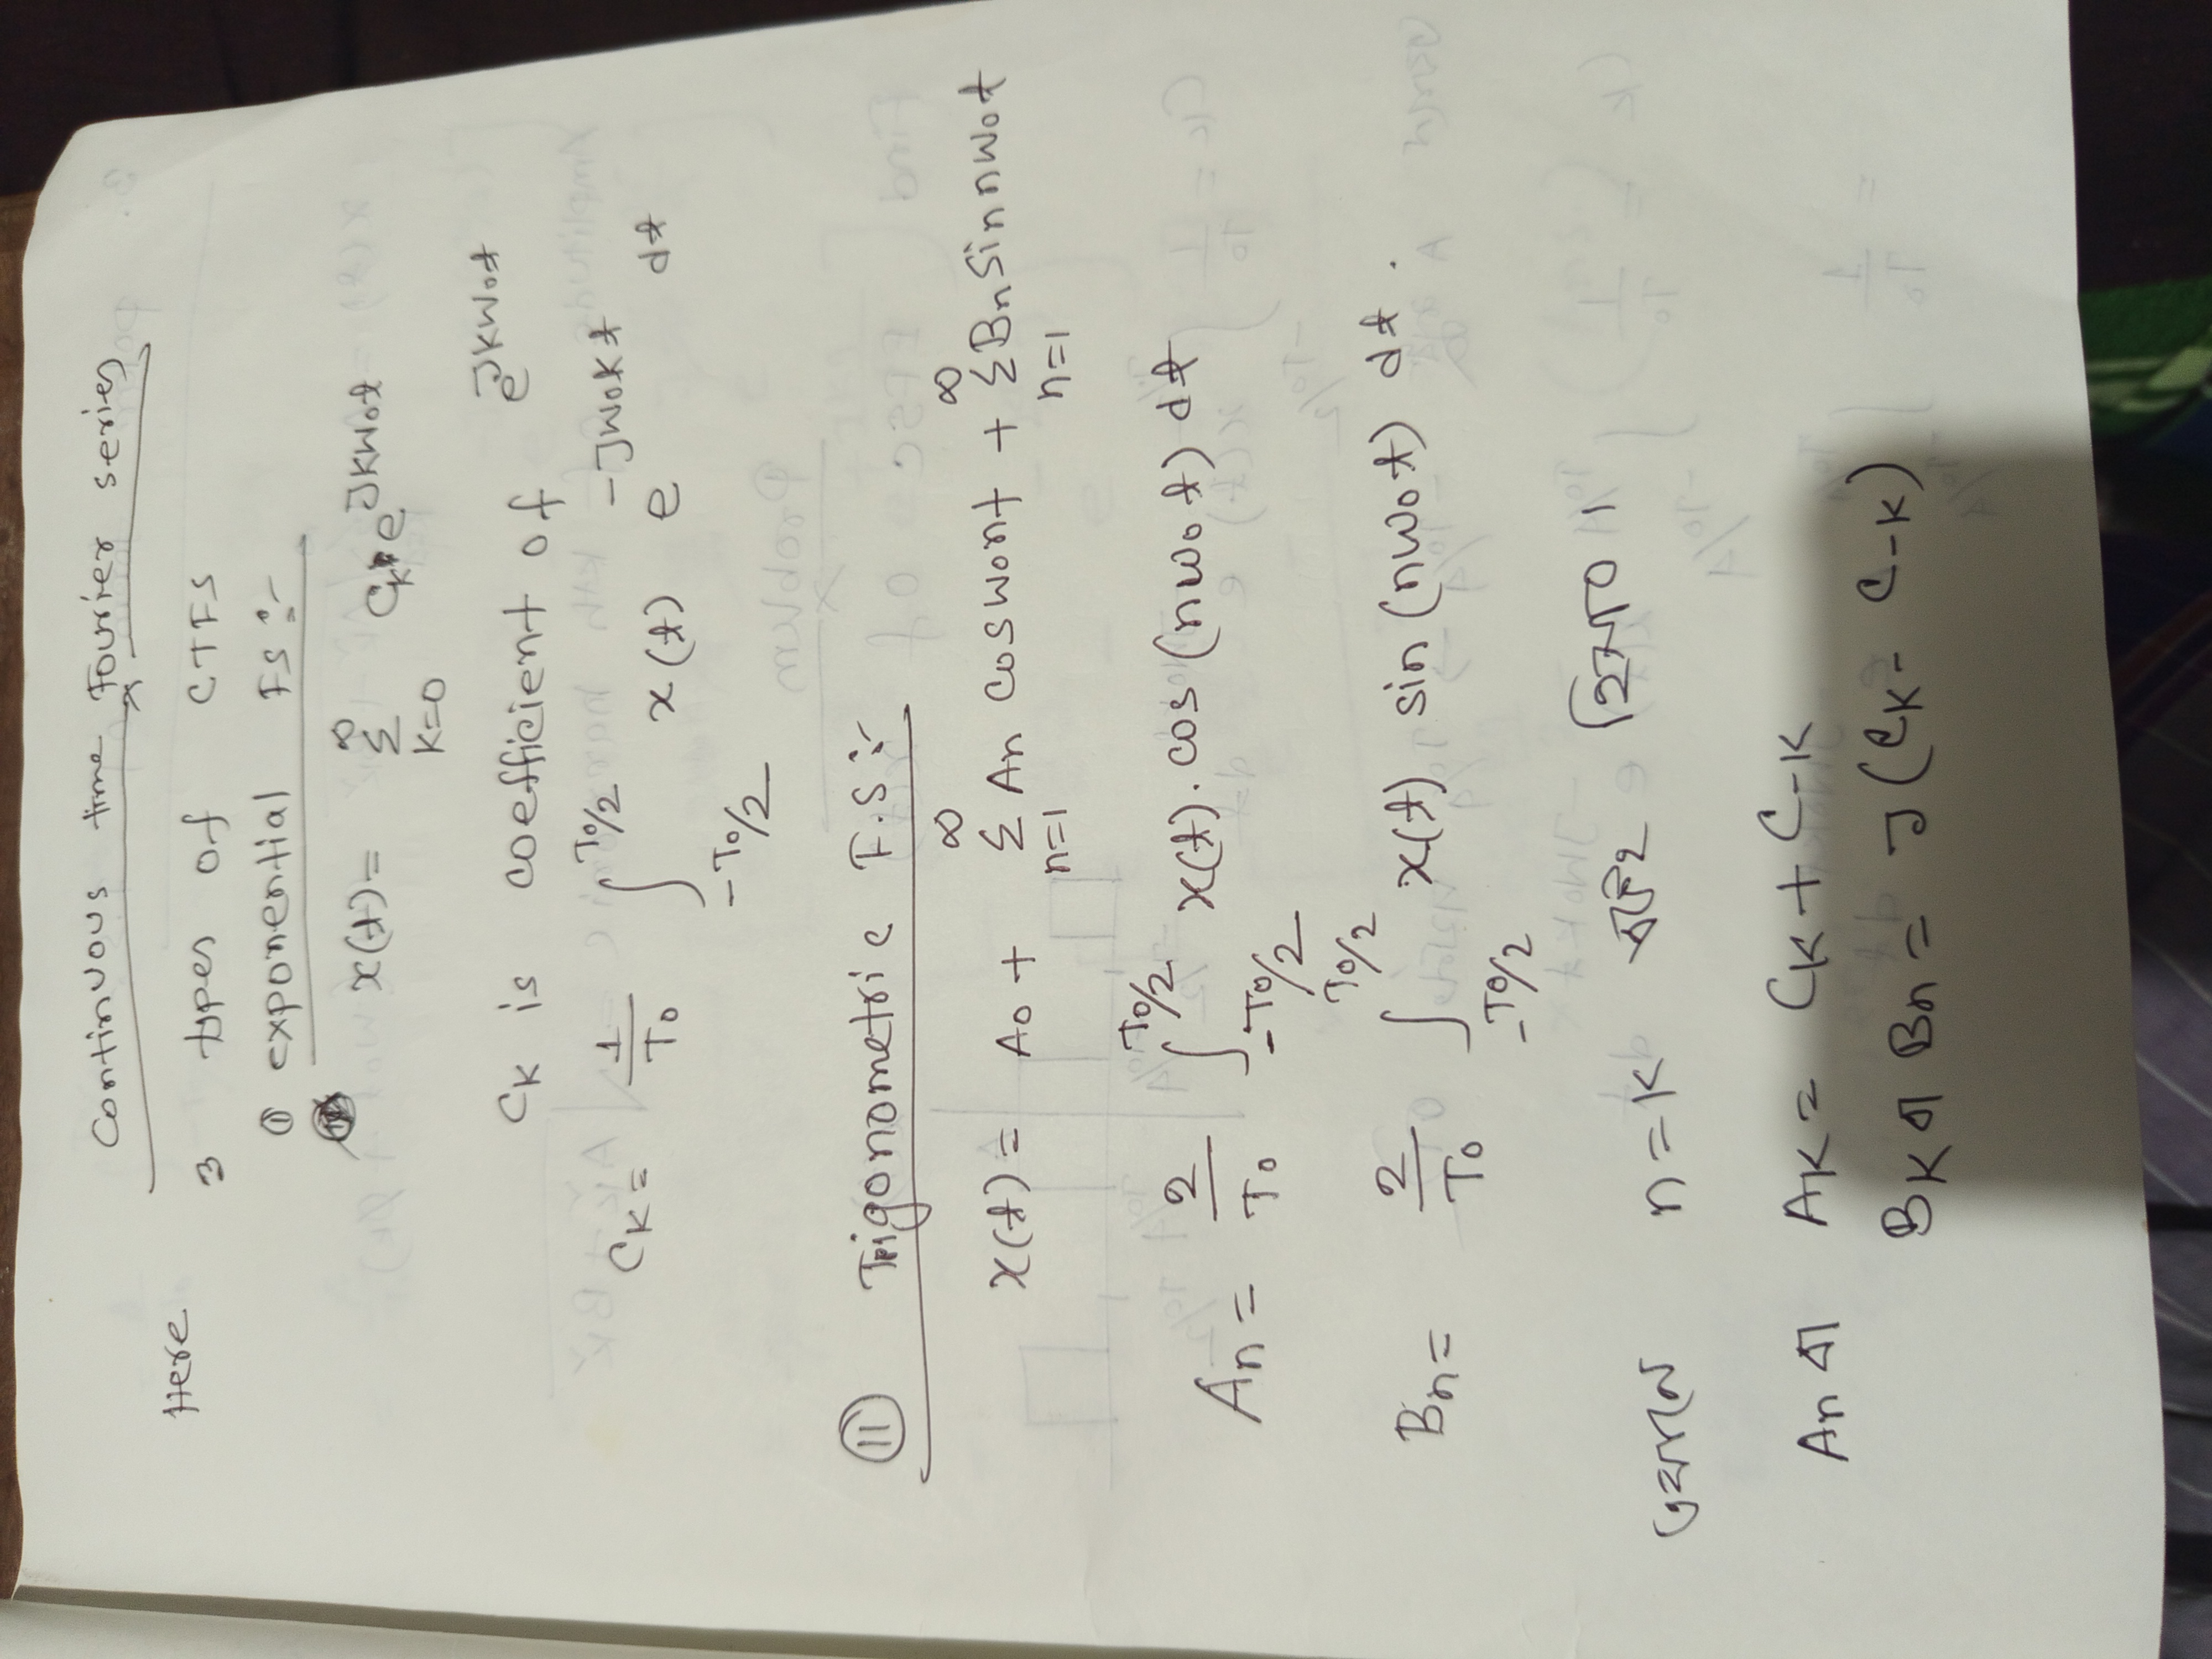 Continuous time Fourier series
Here
3 types of CTFS
① exponential FS :-
x(t) = ∞ Σ K=0 C_K e^{JKW₀t}
C_K is coefficient of e^{JKW₀t}
C_K = 1/T₀ ∫_{-T₀/2}^{T₀/2} x(t) e^{-JW₀Kt} dt
⑪ Trigonometric F.S :-
x(t) = A₀ + ∞ Σ n=1 An cos w₀nt + ∞ Σ n=1 Bn Sin nw₀t
An = 2/T₀ ∫_{-T₀/2}^{T₀/2} x(t). cos (nw₀t) dt
Bn = 2/T₀ ∫_{-T₀/2}^{T₀/2} x(t) sin (nw₀t) dt.
এখানে n=K একই হিসাব।
An বা A_K = C_K + C_-K
B_K বা Bn = J (C_K - C_-K)